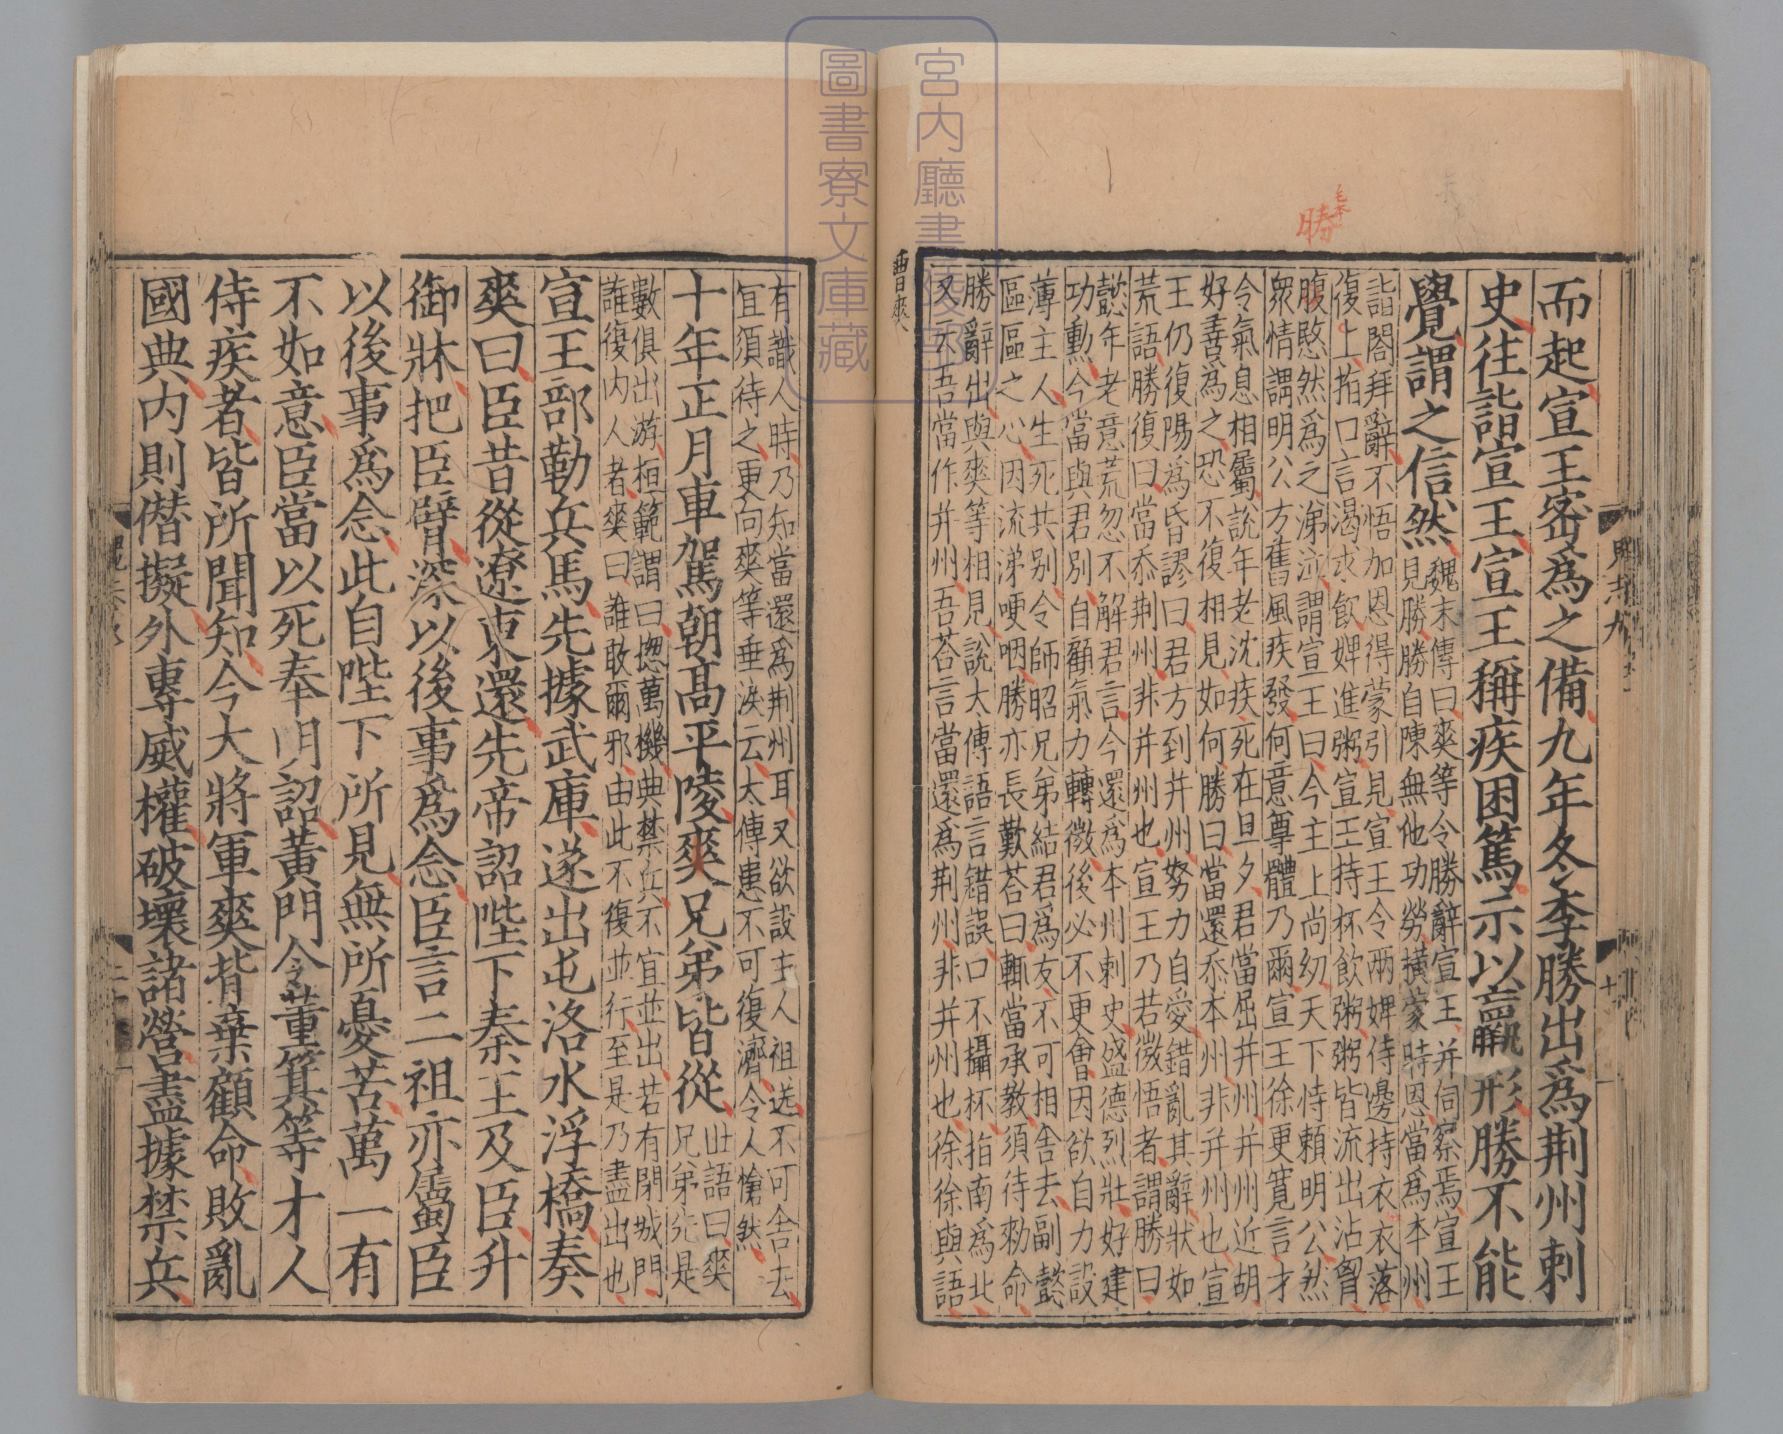 而起宣王密爲之備九年冬季勝出爲荆州刺
史往詣宣王宣王稱疾困篤示以羸形勝不能
覺謂之信然
魏末傳曰爽等令勝辭宣王并伺察焉宣王
見勝勝自陳無他功勞橫蒙時恩當爲本州
詣閤拜辭不悟加恩得蒙引見宣王令兩婢侍邊持衣衣落
復上指口言渴求飮婢進粥宣王持杯飮粥粥皆流出沾胷
腹愍然爲之涕泣謂宣王曰今主上尚幼天下恃賴明公然
衆情謂明公方舊風疾發何意尊體乃爾宣王徐更寛言才
令氣息相屬說年老沈疾死在旦夕君當屈并州并州近胡
好善爲之恐不復相見如何勝曰當還忝本州非并州也宣
王仍復陽爲昏謬曰君方到并州努力自愛錯亂其辭狀如
荒語勝復曰當忝荆州非并州也宣王乃若微悟者謂勝曰
懿年老意荒忽不解君言今還爲本州刺史盛德烈壯好建
功勳今當與君別自顧氣力轉微後必不更會因欲自力設
薄主人生死共別令師昭兄弟結君爲友不可相舍去副懿
區區之心因流涕哽咽勝亦長歎荅曰輒當承教須待勑命
勝辭出與爽等相見說太傅語言錯誤口不攝杯指南爲北
又云吾當作并州吾荅言當還爲荆州非并州也徐徐與語
曹爽
勝
有識人時乃知當還爲荆州耳又欲設主人祖送不可舍去
宜須待之更向爽等垂淚云太傅患不可復濟令人愴然
十年正月車駕朝高平陵爽兄弟皆從
世語曰爽
兄弟先是
數俱出游桓範謂曰揔萬機典禁兵不宜並出若有閉城門
誰復内人者爽曰誰敢爾邪由此不復並行至是乃盡出也
宣王部勒兵馬先據武庫遂出屯洛水浮橋奏
爽曰臣昔從遼東還先帝詔陛下秦王及臣升
御牀把臣臂深以後事爲念臣言二祖亦屬臣
以後事爲念此自陛下所見無所憂苦萬一有
不如意臣當以死奉明詔黃門令董箕等才人
侍疾者皆所聞知今大將軍爽背棄顧命敗亂
國典内則僭擬外專威權破壞諸營盡據禁兵
宮内廳書陵部
圖書寮文庫藏